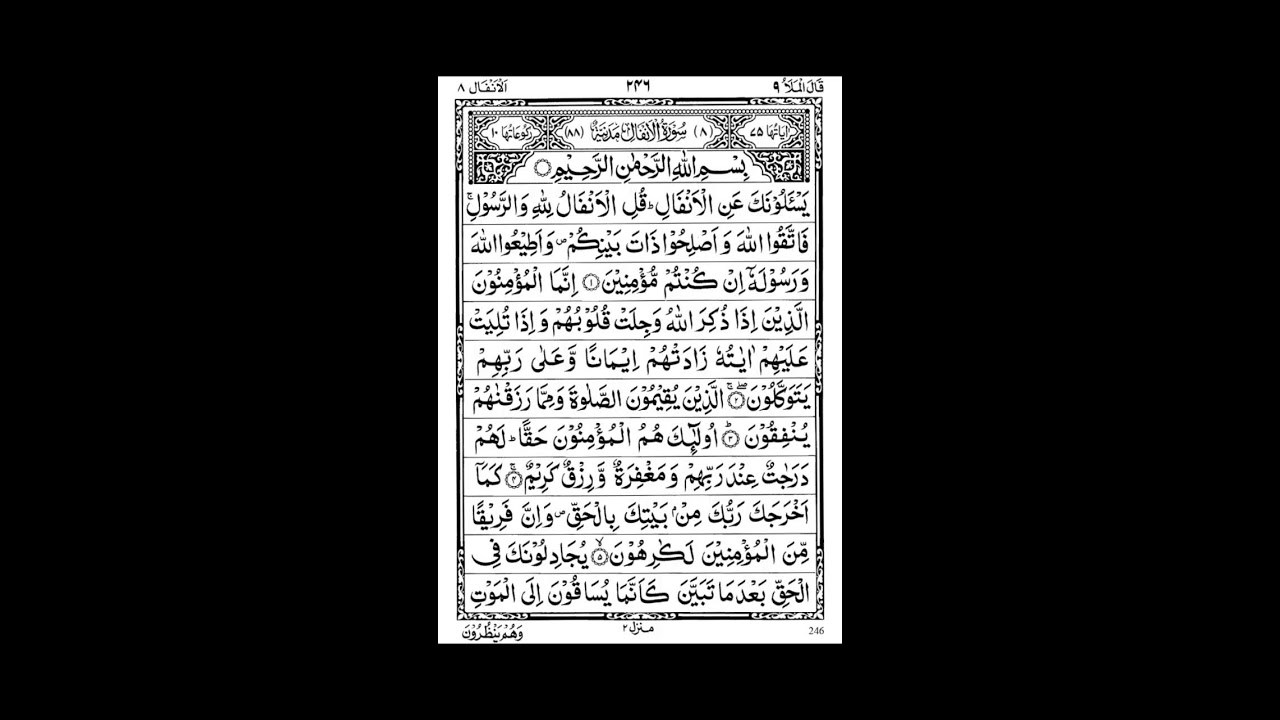 قَالَ الْمَلَاُ ٩ ٢٤٦ اَلْاَنْفَال ٨
اٰیَاتُهَا ٧٥ (٨) سُوْرَةُ الْاَنْفَالِ مَدَنِيَّةٌ (٨٨) رُكُوْعَاتُهَا ١٠
بِسْمِ اللّٰهِ الرَّحْمٰنِ الرَّحِيْمِ
يَسْـَٔلُوْنَكَ عَنِ الْاَنْفَالِ ؕ قُلِ الْاَنْفَالُ لِلّٰهِ وَالرَّسُوْلِ ۚ
فَاتَّقُوا اللّٰهَ وَ اَصْلِحُوْا ذَاتَ بَيْنِكُمْ ۪ وَاَطِيْعُوا اللّٰهَ
وَرَسُوْلَهٗۤ اِنْ كُنْتُمْ مُّؤْمِنِيْنَ ۝١ اِنَّمَا الْمُؤْمِنُوْنَ
الَّذِيْنَ اِذَا ذُكِرَ اللّٰهُ وَجِلَتْ قُلُوْبُهُمْ وَ اِذَا تُلِيَتْ
عَلَيْهِمْ اٰيٰتُهٗ زَادَتْهُمْ اِيْمَانًا وَّعَلٰى رَبِّهِمْ
يَتَوَكَّلُوْنَ ۝٢ الَّذِيْنَ يُقِيْمُوْنَ الصَّلٰوةَ وَمِمَّا رَزَقْنٰهُمْ
يُنْفِقُوْنَ ۝٣ اُولٰٓئِكَ هُمُ الْمُؤْمِنُوْنَ حَقًّا ؕ لَهُمْ
دَرَجٰتٌ عِنْدَ رَبِّهِمْ وَمَغْفِرَةٌ وَّرِزْقٌ كَرِيْمٌ ۝٤ كَمَاۤ
اَخْرَجَكَ رَبُّكَ مِنْۢ بَيْتِكَ بِالْحَقِّ ۪ وَاِنَّ فَرِيْقًا
مِّنَ الْمُؤْمِنِيْنَ لَكٰرِهُوْنَ ۝٥ يُجَادِلُوْنَكَ فِى
الْحَقِّ بَعْدَمَا تَبَيَّنَ كَاَنَّمَا يُسَاقُوْنَ اِلَى الْمَوْتِ
246 منزل ٢ وَهُمْ يَنْظُرُوْنَ